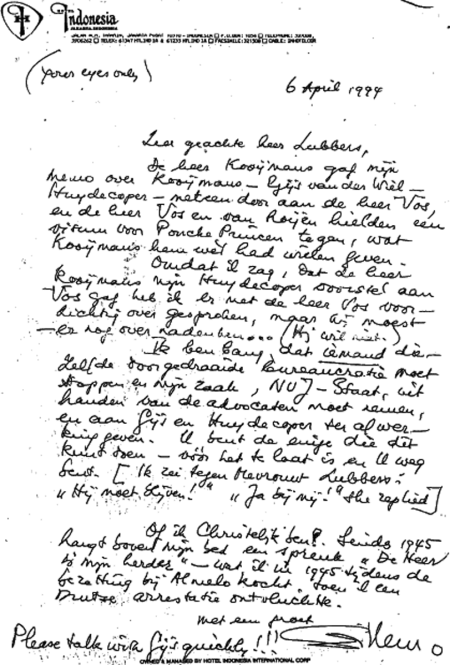 Indonesia
JAKARTA-INDONESIA
(yours eyes only)
6 April 1994
Zeer geachte heer Lubbers,
De heer Kooijmans gaf mijn
memo over Kooijmans – Gijs van der Wiel –
Huydecoper – meteen door aan de heer Vos,
en de heer Vos en van Roijen hielden een
visum voor Poncke Princen tegen, wat
Kooijmans hem wel had willen geven.
Omdat ik zag, dat de heer
Kooijmans mijn Huydecoper voorstel aan
Vos gaf heb ik er met de heer Vos voor-
zichtig over gesproken, maar hij moest
er nog over nadenken... (Hij wil niet.)
Ik ben bang, dat iemand die-
zelfde doorgedraaide bureaucratie moet
stoppen en mijn zaak, NUJ – Staat, uit
handen van de advocaten moet nemen,
en aan Gijs en Huydecoper ter afwer-
king geven. U bent de enige die dit
kunt doen – vóór het te laat is en U weg
bent. [Ik zei tegen Mevrouw Lubbers:
„Hij moet blijven!" „Ja bij mij!" she replied]
Of ik Christelijk ben? Sinds 1945
hangt boven mijn bed een spreuk „De Heer
is mijn herder" – wat ik in 1945 tijdens de
bezetting bij Almelo kocht, toen ik een
Duitse arrestatie ontvluchtte.
met een groet
Please talk with Gijs quickly!!!
OWNED & MANAGED BY HOTEL INDONESIA INTERNATIONAL CORP